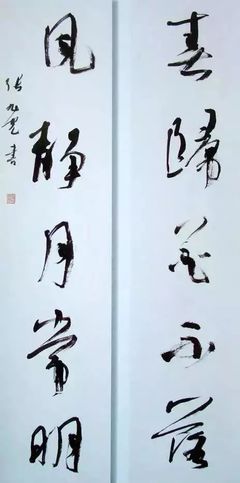 春歸花不落
風靜月常明
张旭光書